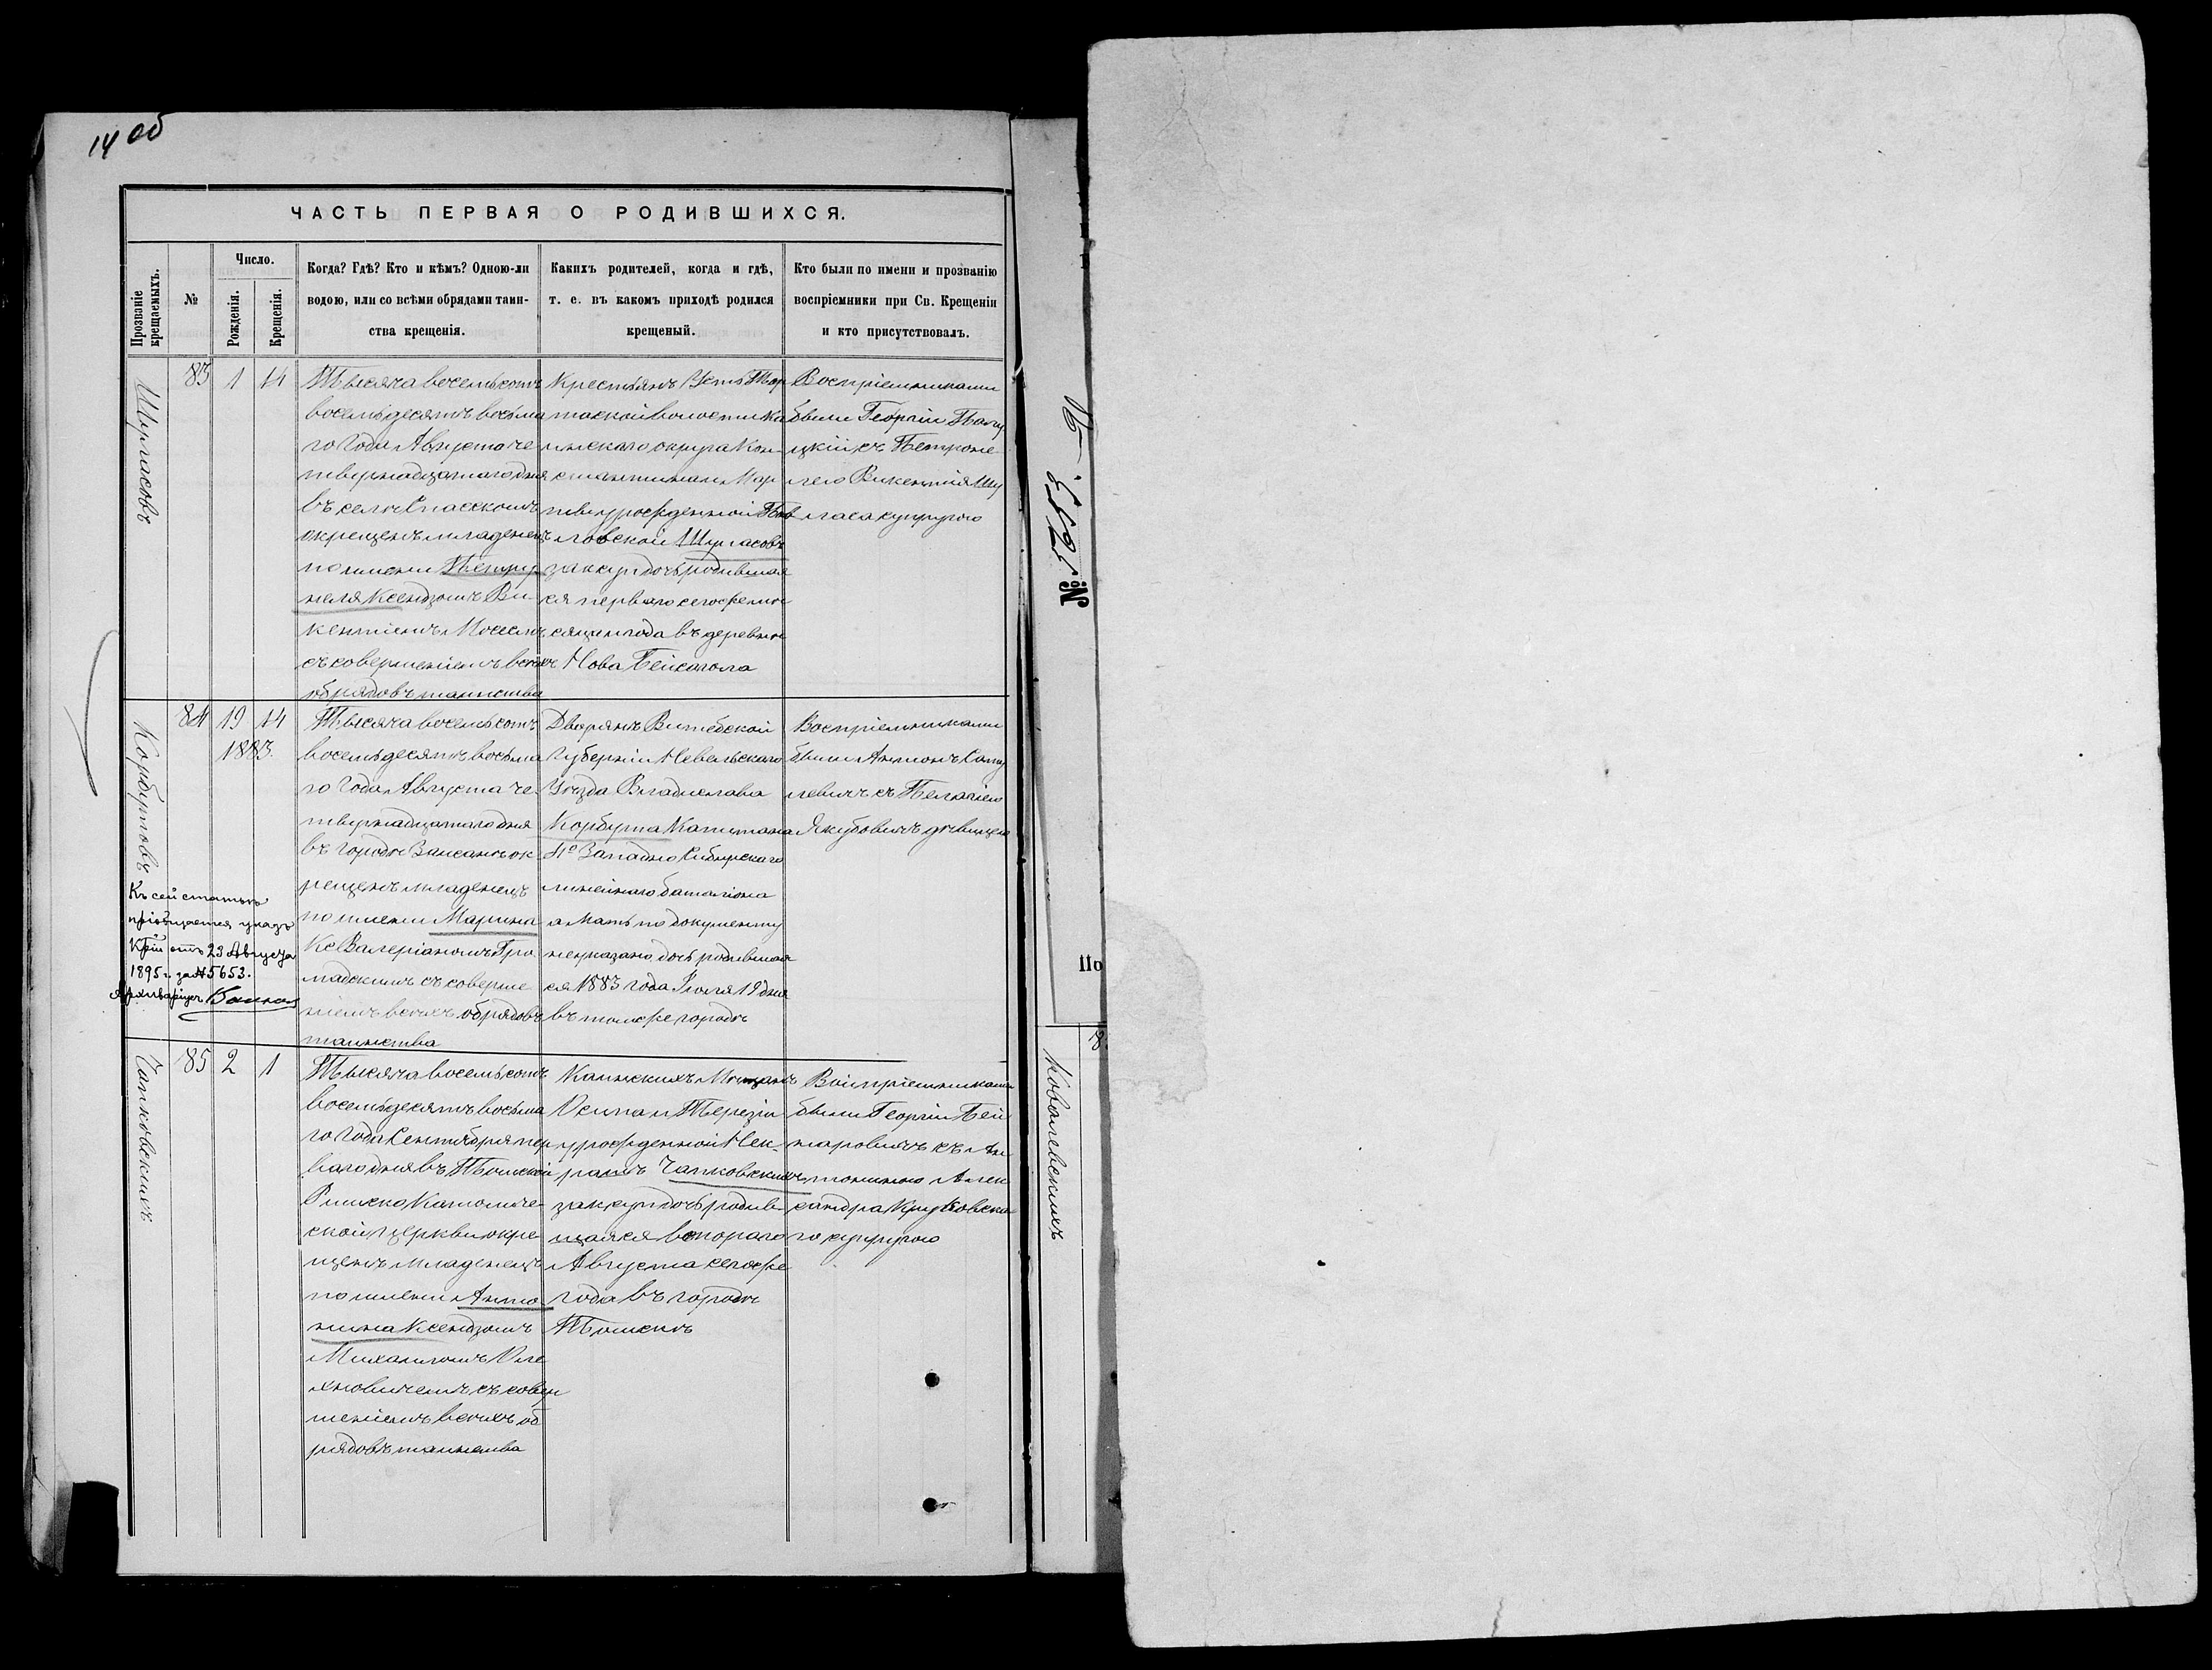 14 об
ЧАСТЬ ПЕРВАЯ О РОДИВШИХСЯ.
Прозваніе крещаемыхъ.
№
Число.
Рожденія.
Крещенія.
Когда? Гдѣ? Кто и кѣмъ? Одною-ли
водою, или со всѣми обрядами таин-
ства крещенія.
Какихъ родителей, когда и гдѣ,
т. е. въ какомъ приходѣ родился
крещеный.
Кто были по имени и прозванію
воспріемники при Св. Крещеніи
и кто присутствовалъ.
Шургасовъ
83 1 14
Тысяча восемьсотъ
восемьдесятъ восьма
го Года Августа че
твернадцатаго дня
въ селѣ Спасскомъ
окрещенъ младенецъ
по имени Петру
неля Ксендзомъ Ви-
кентіемъ
съ совершеніемъ всѣхъ
обрядовъ таинства
Крестьянъ Усть Тар
таской волости Ка
инскаго округа Кон-
стантина и Мар
урожденной Пав
ловской Шургасовъ
зак. дочь родившая
ся перваго сего же мѣ
сяца и года въ деревнѣ
Нова
Воспріемниками
были Георгій
цкій съ Петроне
лею Викентія Шу
гаса супругою
Корбутовъ
84 19 14
1883.
Тысяча восемьсотъ
восемьдесятъ восьма
го Года Августа че
твернадцатаго дня
въ городѣ Заисанѣ ок
рещенъ младенецъ
по имени Марина
Кс Валеріаномъ Гро
мадскимъ съ соверше
ніемъ всѣхъ обрядовъ
таинства
Дворянъ Витебской
Губерніи Невельскаго
Уѣзда Владислава
Корбута Капитана
Западно Сибирскаго
линейнаго баталіона
а мать по документу
не указано дочь родившая
ся 1883 года Іюля 19 дня
въ томъ же городѣ
Воспріемниками
были Антонъ Саму
левичъ съ Пелагіею
Якубовичъ дѣвицею
Къ сей статьѣ
пріобщается указъ
Кріи отъ 23 Августа
1895 г. за № 5653.
Архиваріусъ
Чапковскихъ
85 2 1
Тысяча восемьсотъ
восемьдесятъ восьма
го Года Сентября пер
ваго дня въ Томской
Римско Католиче-
ской церкви окре
щенъ младенецъ
по имени Анто
нина Ксендзомъ
Михаиломъ Оле
хновичемъ съ совер
шеніемъ всѣхъ об
рядовъ таинства
Каинскихъ Мѣщанъ
Осипа и Терезіи
урожденной Нек-
рашъ Чапковскихъ
зак. дочь родив-
шаяся втораго
Августа сего же
года въ городѣ
Томскѣ
Воспріемниками
были Георгій Бей
наровичъ съ Ан
тониною Алек
сандра Крулковска
го супругою
№
По
Ковалевскихъ